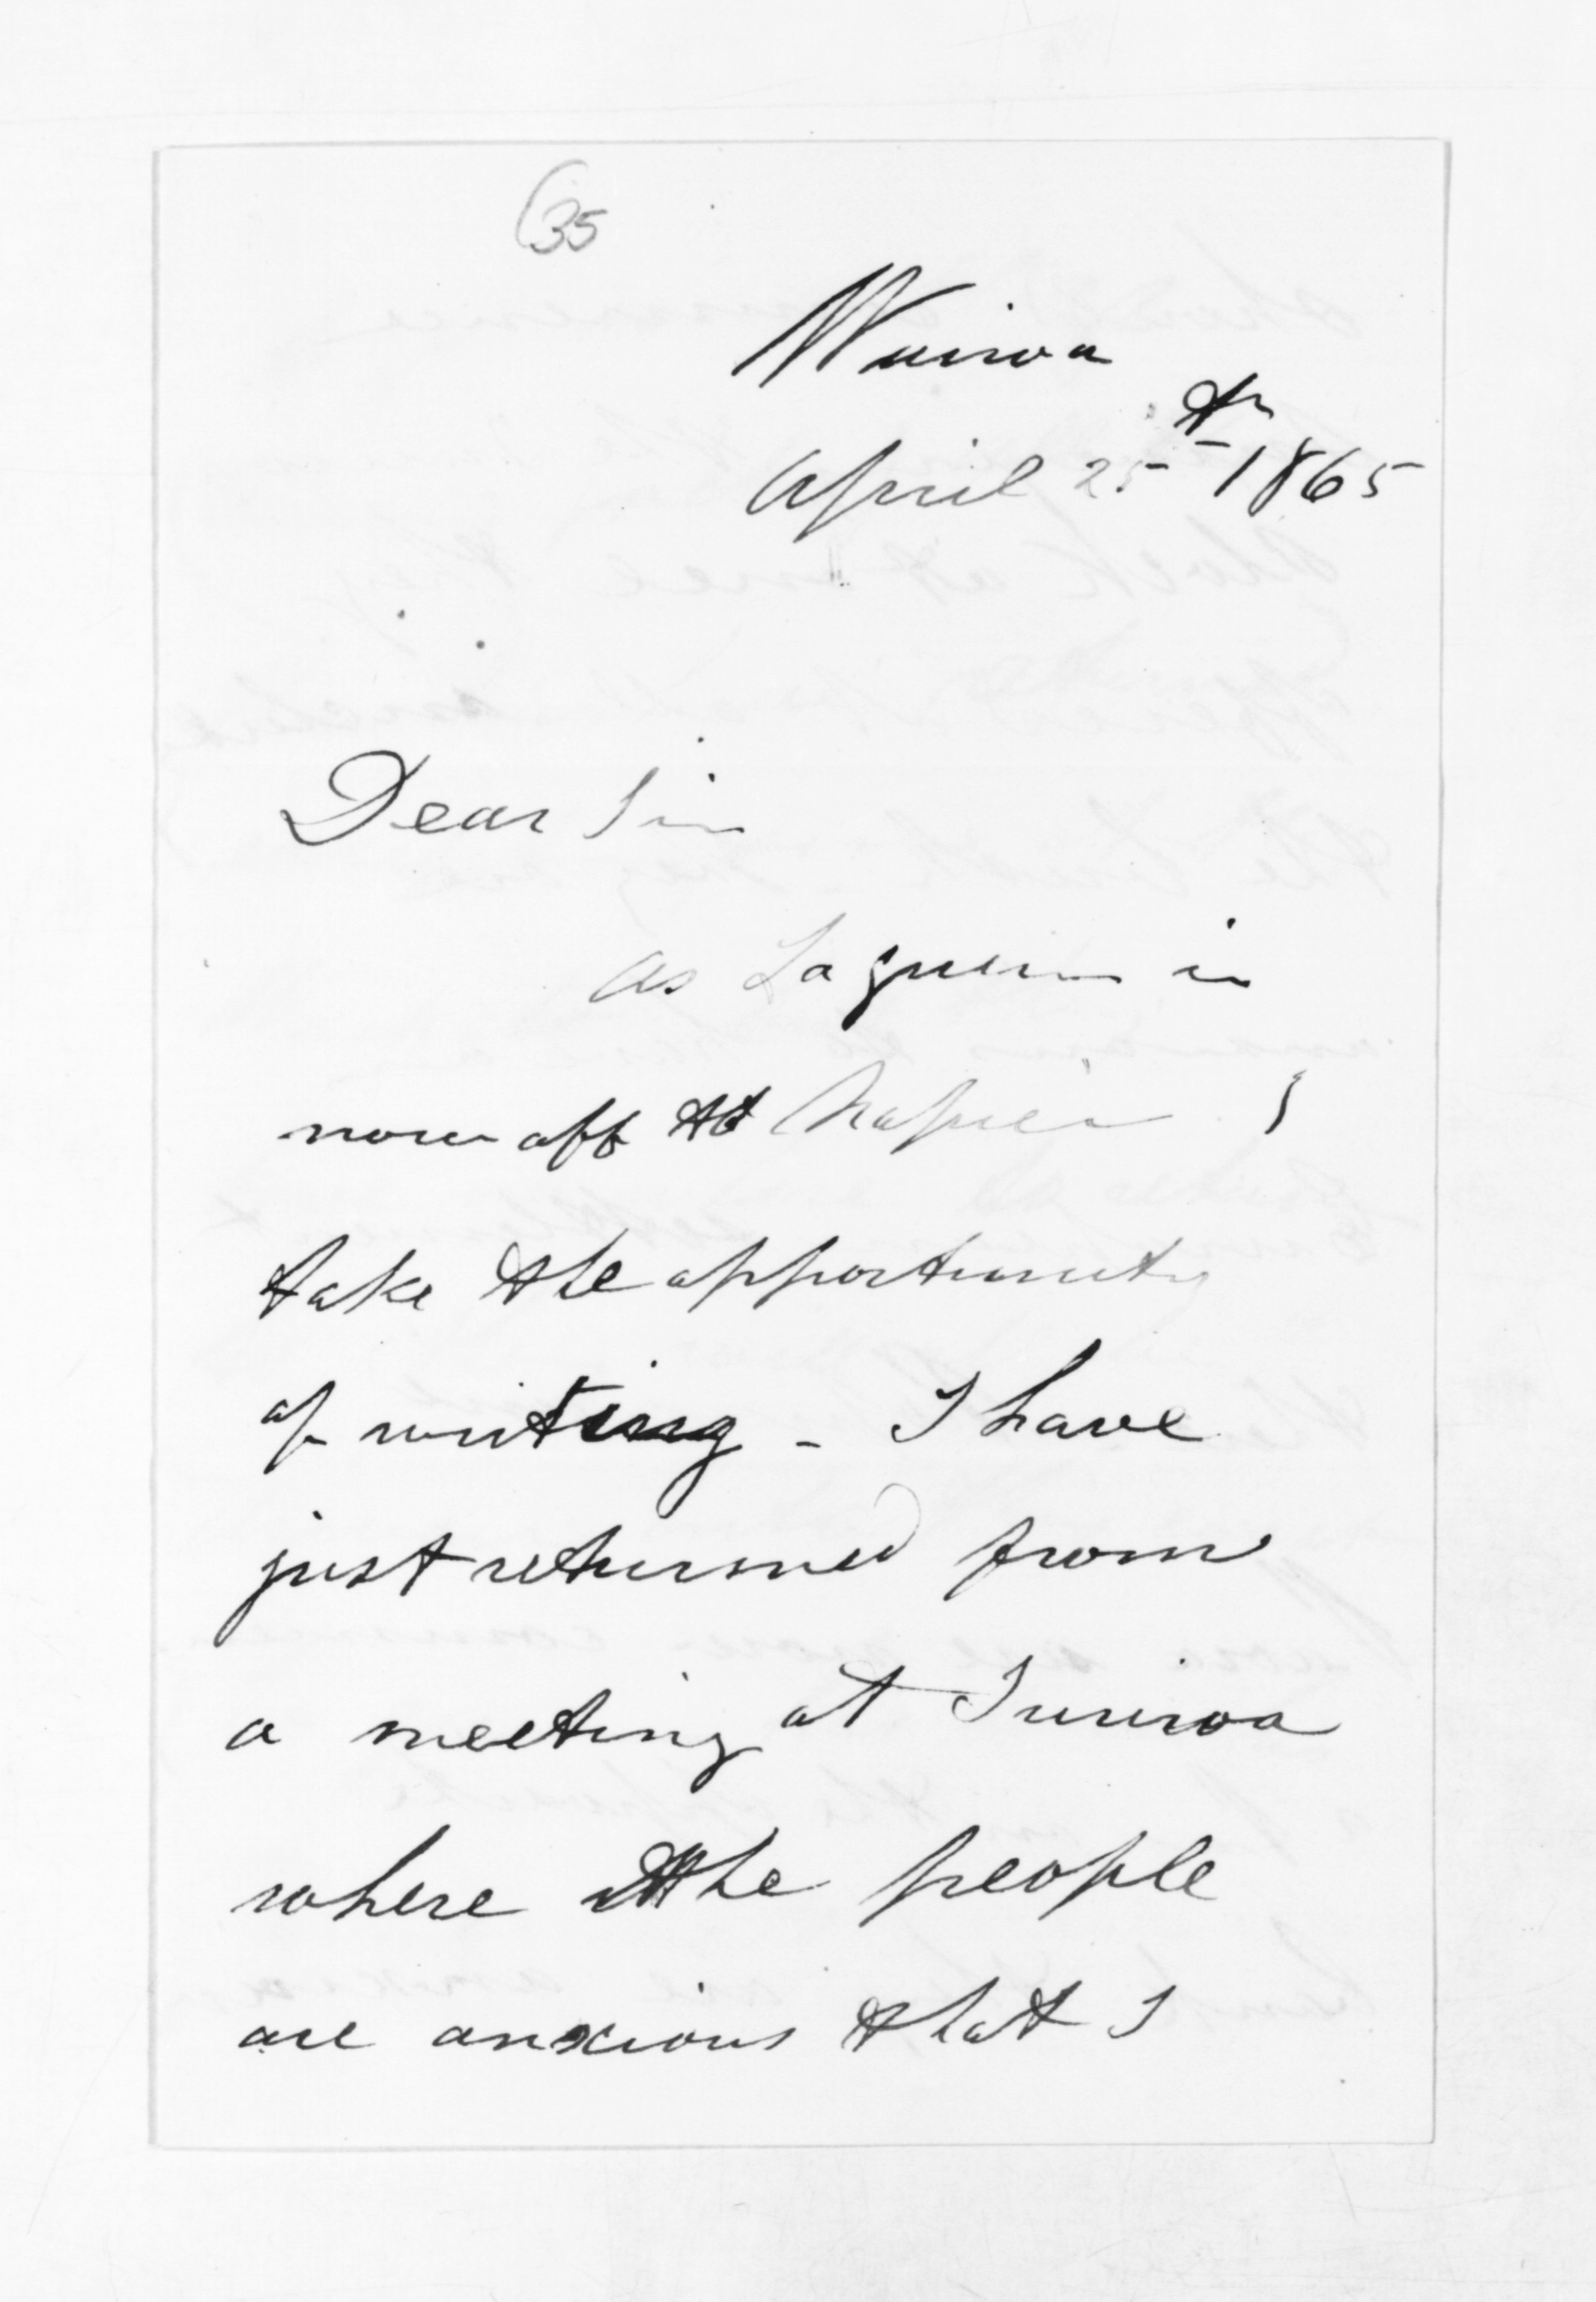 (35
Wairoa
April 25th 1865
Dear Sir
as Laguein is
now off to Napier I
take the opportunity
of writing - I have
just returned from
a meeting at Turiroa
where the people
are anxious that I